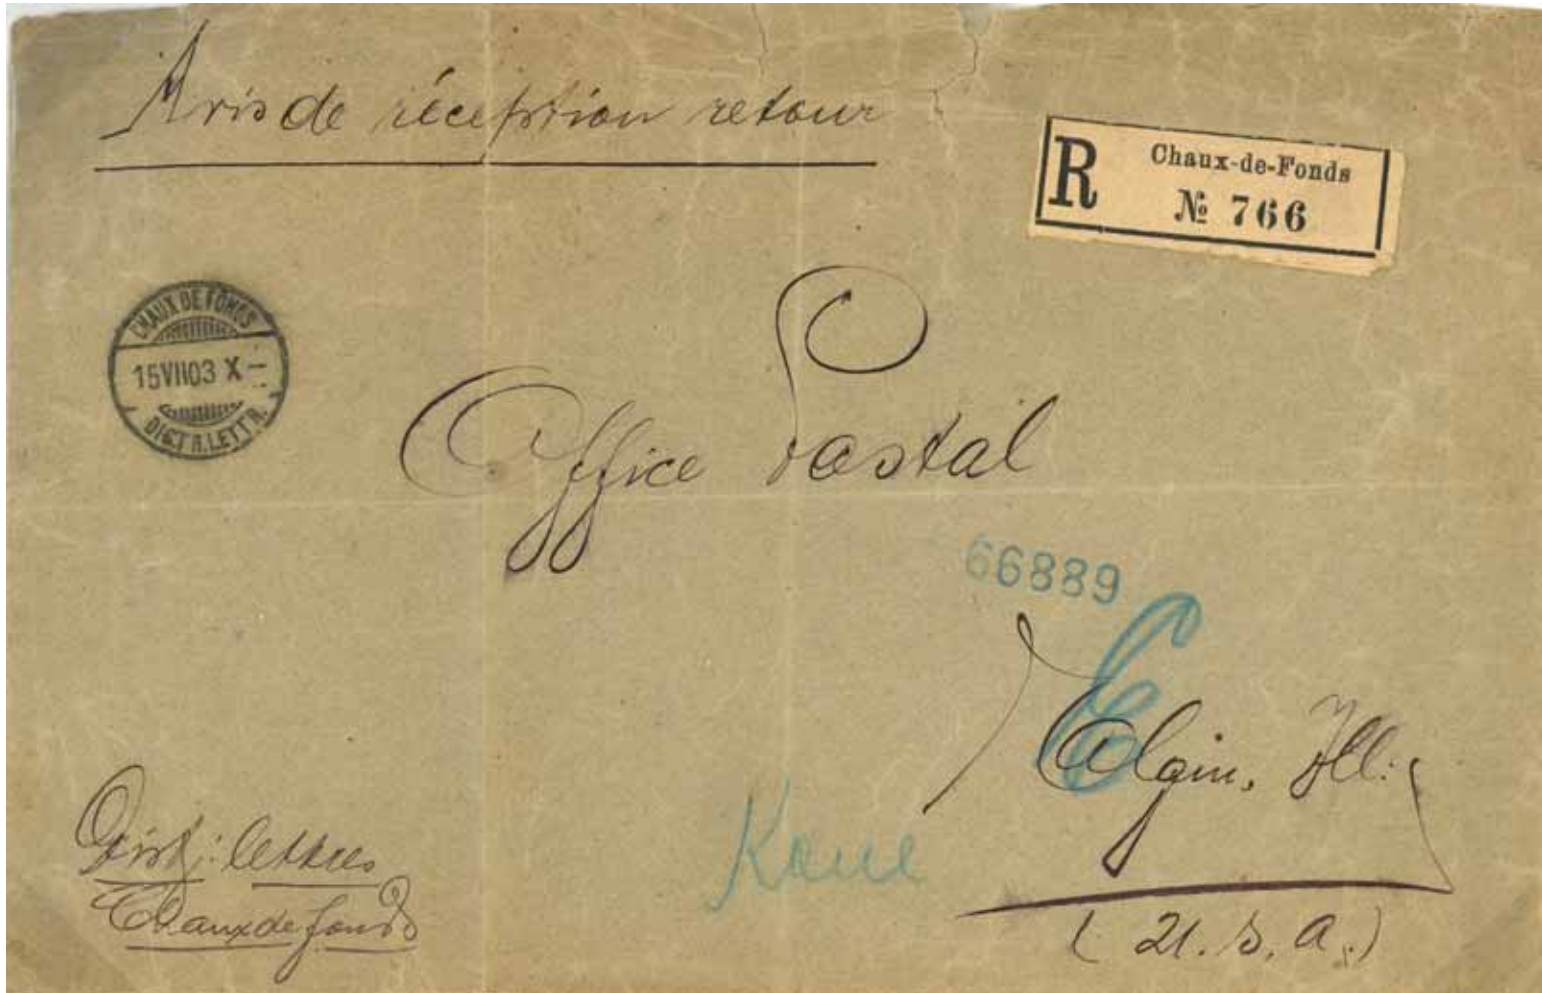 Avis de réception retour
R Chaux-de-Fonds
№ 766
CHAUX DE FONDS
15 VII 03 X-
DISTR. LETTR.
Office Postal
66889
E
Elgin, Ill:
Kane
(U.S.A.)
Distr: lettres
Chaux de fonds